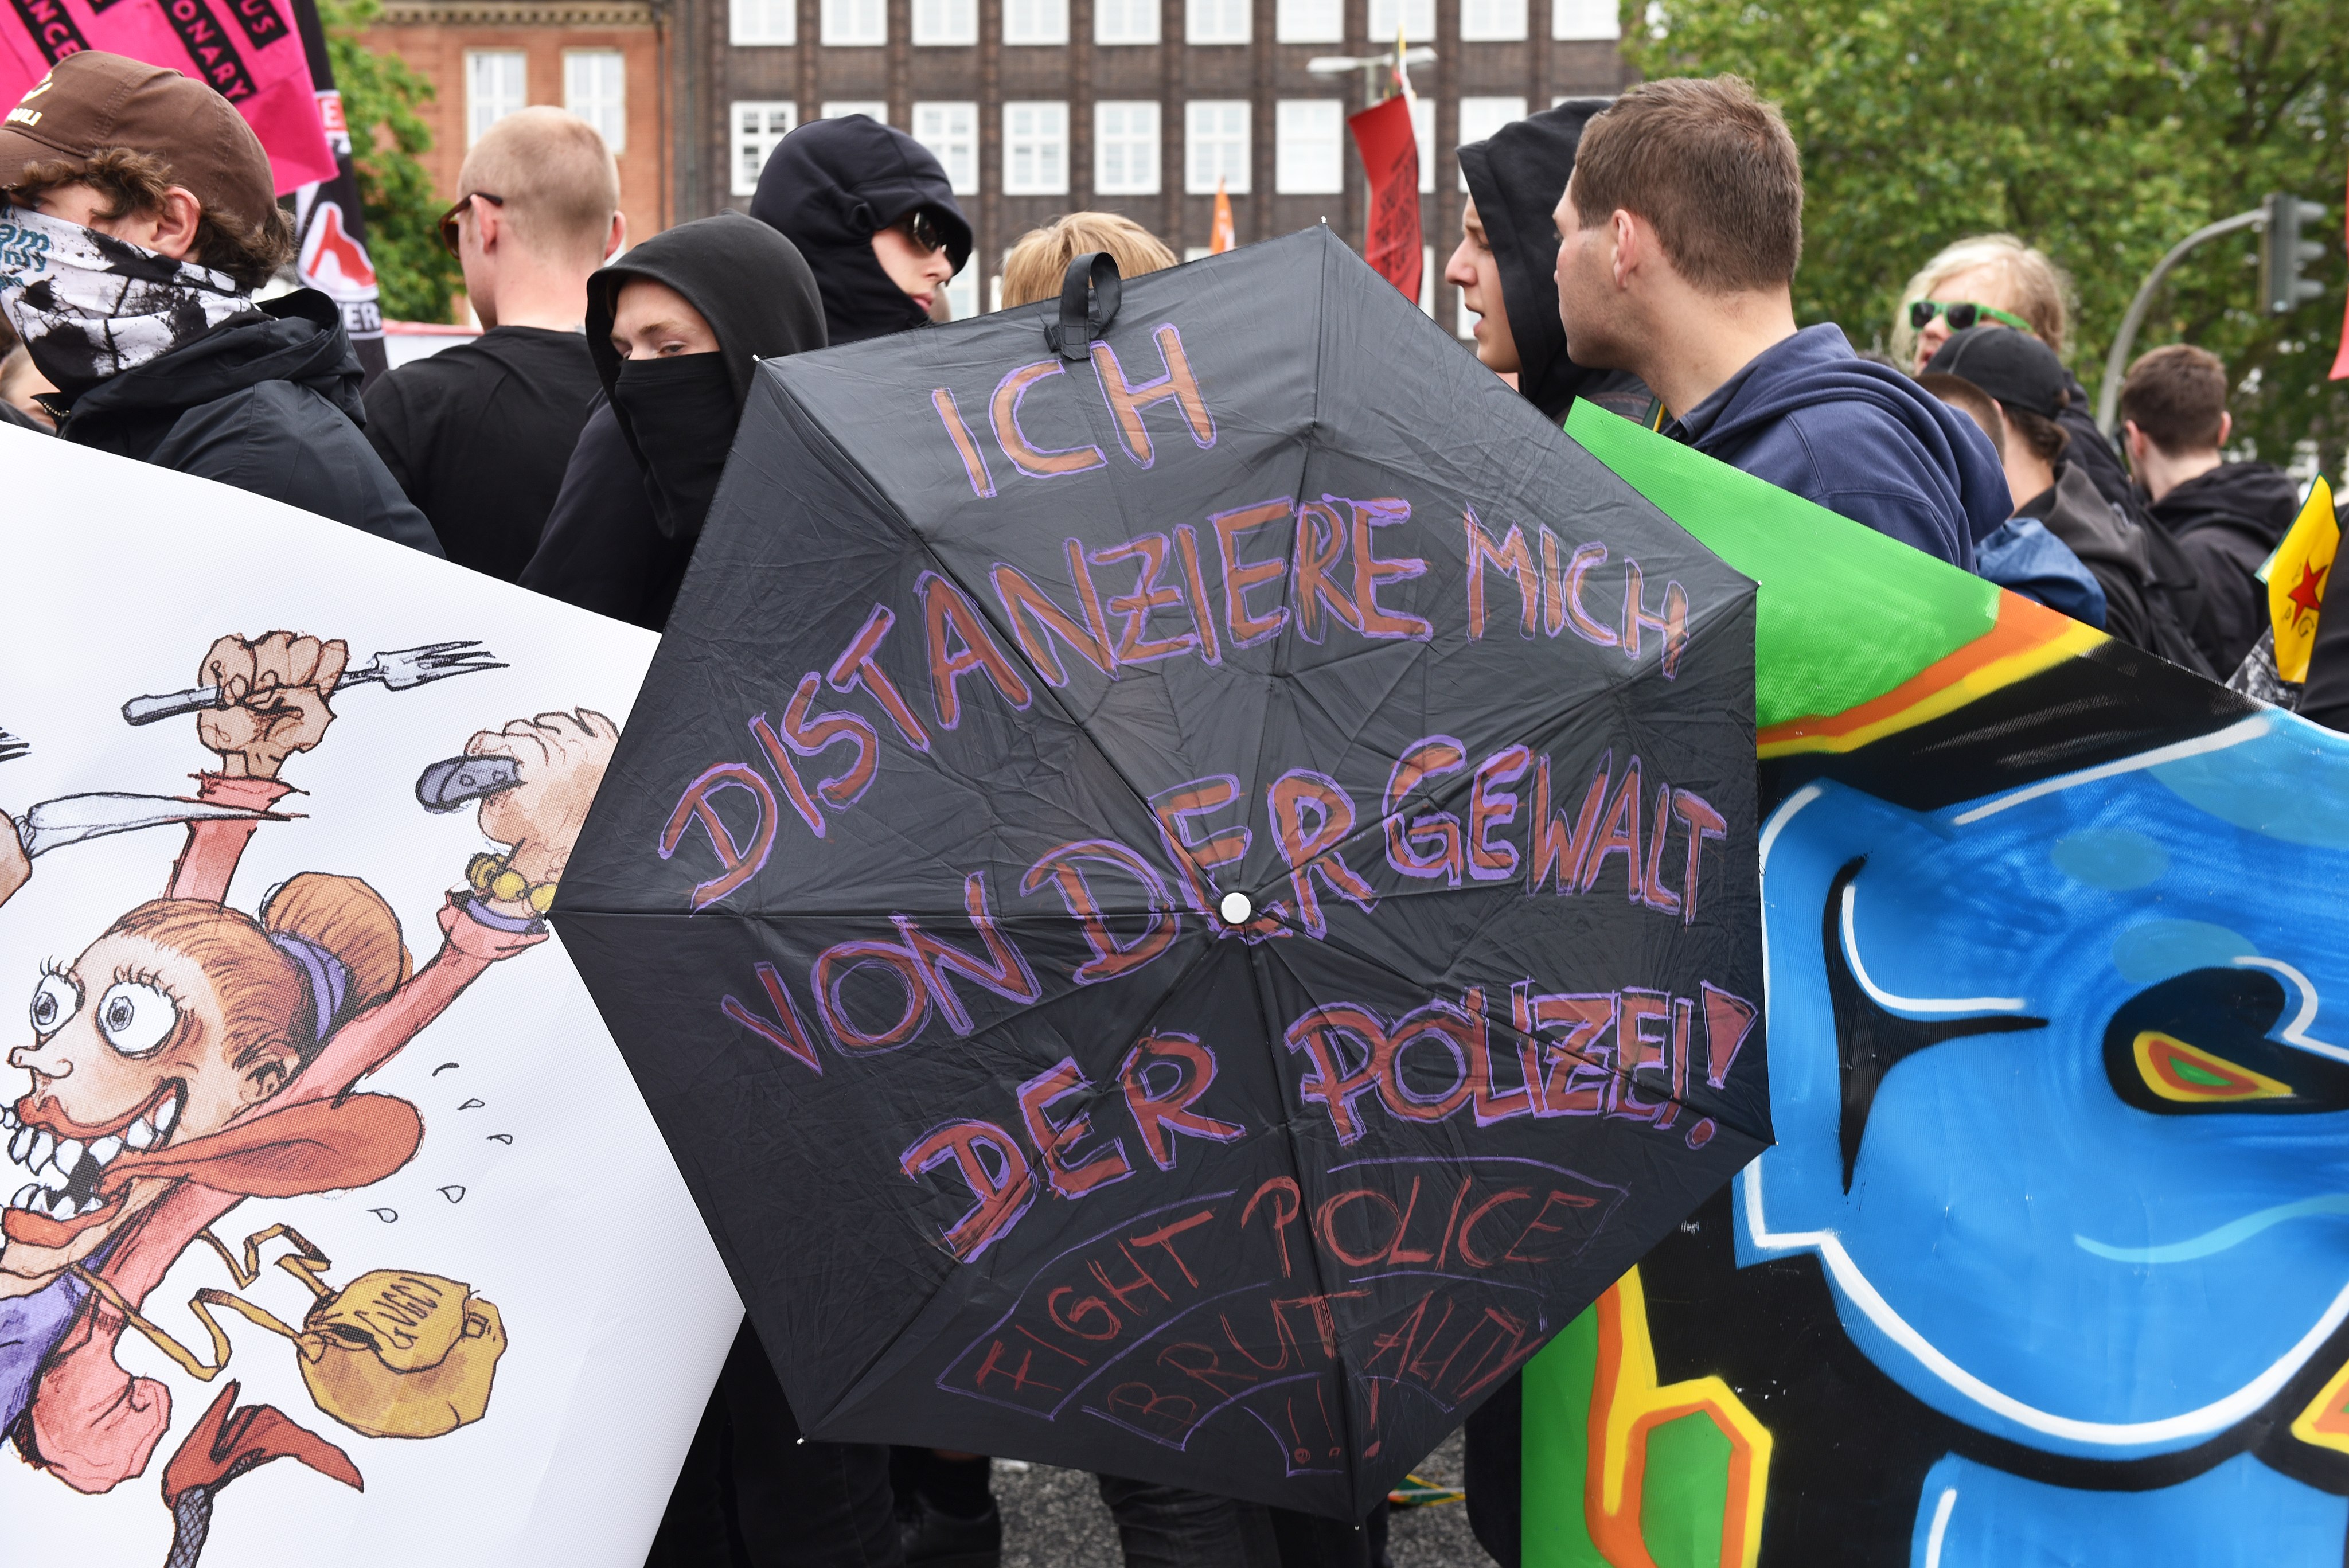 ICH
DISTANZIERE MICH
VON DER GEWALT
DER POLIZEI!
FIGHT POLICE
BRUTALITY
!!!
GUCCI
PG